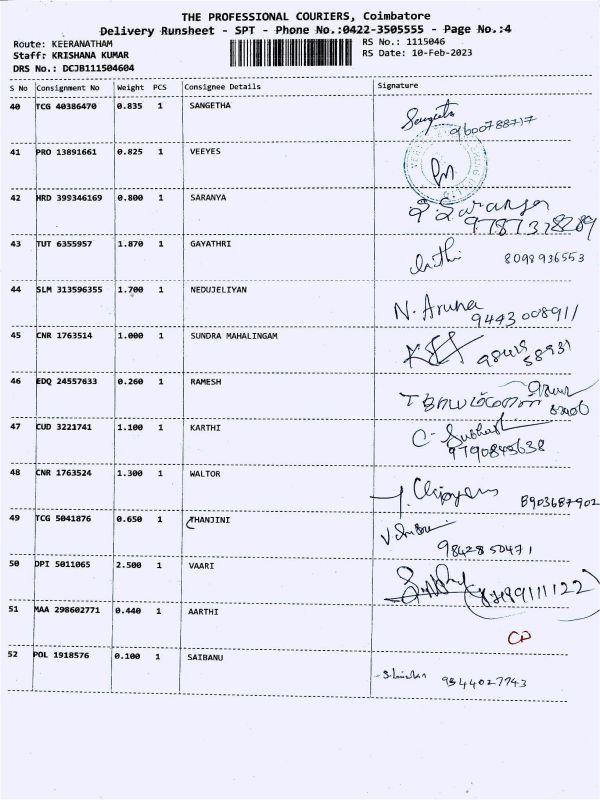 THE PROFESSIONAL COURIERS, Coimbatore
Delivery Runsheet - SPT - Phone No.:0422-3505555 - Page No.:4
Route: KEERANATHAM
RS No.: 1115046
Staff: KRISHANA KUMAR
RS Date: 10-Feb-2023
DRS No.: DCJB111504604
S No Consignment No Weight PCS Consignee Details Signature
40 TCG 40386470 0.835 1 SANGETHA Sangeeta
9600788717
41 PRO 13891661 0.825 1 VEEYES
42 HRD 399346169 0.800 1 SARANYA S. Saranya
9787378289
43 TUT 6355957 1.870 1 GAYATHRI 8098936553
44 SLM 313596355 1.700 1 NEDUJELIYAN N. Aruna
9443008911
45 CNR 1763514 1.000 1 SUNDRA MAHALINGAM
46 EDQ 24557633 0.260 1 RAMESH
47 CUD 3221741 1.100 1 KARTHI
9790845638
48 CNR 1763524 1.300 1 WALTOR 8903687902
49 TCG 5041876 0.650 1 THANJINI
9842850471
50 DPI 5011065 2.500 1 VAARI
51 MAA 298602771 0.440 1 AARTHI
52 POL 1918576 0.100 1 SAIBANU 9344027743